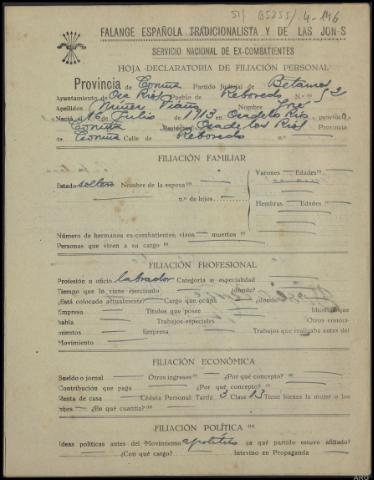 FALANGE ESPAÑOLA TRADICIONALISTA Y DE LAS JON-S
SERVICIO NACIONAL DE EX-COMBATIENTES
HOJA DECLARATORIA DE FILIACIÓN PERSONAL
Provincia de Coruña Partido Judicial de Betanzos
Ayuntamiento de Pueblo de Reboredo N.º
Apellidos Nombre José
Nació 16 Julio de 1913 en Oza de los Ríos provincia
Coruña Oza de los Ríos Provincia
de Coruña Calle de Reboredo n.º
FILIACIÓN FAMILIAR
Varones Edades
Estado soltero Nombre de la esposa
n.º de hijos
Hembras Edades
Número de hermanos ex-combatientes vivos muertos
Personas que viven a su cargo
FILIACIÓN PROFESIONAL
Profesión u oficio labrador Categoría o especialidad
Tiempo que la viene ejerciendo ¿dónde?
¿Está colocado actualmente? Cargo que ocupa ¿donde
Empresa Títulos que posee
habla Trabajos especiales Otros conoci-
mientos Empresa Trabajos que realizaba antes del
Movimiento
FILIACIÓN ECONÓMICA
Sueldo o jornal Otros ingresos ¿Por qué concepto?
Contribución que paga ¿Por qué concepto?
Renta de casa Cédula Personal: Tarifa 3 Clase 13 Tiene bienes la mujer o los
¿En qué cuantía?
FILIACIÓN POLÍTICA
Ideas políticas antes del Movimiento apolítico ¿a qué partido estuvo afiliado?
¿Con qué cargo? Intervino en Propaganda